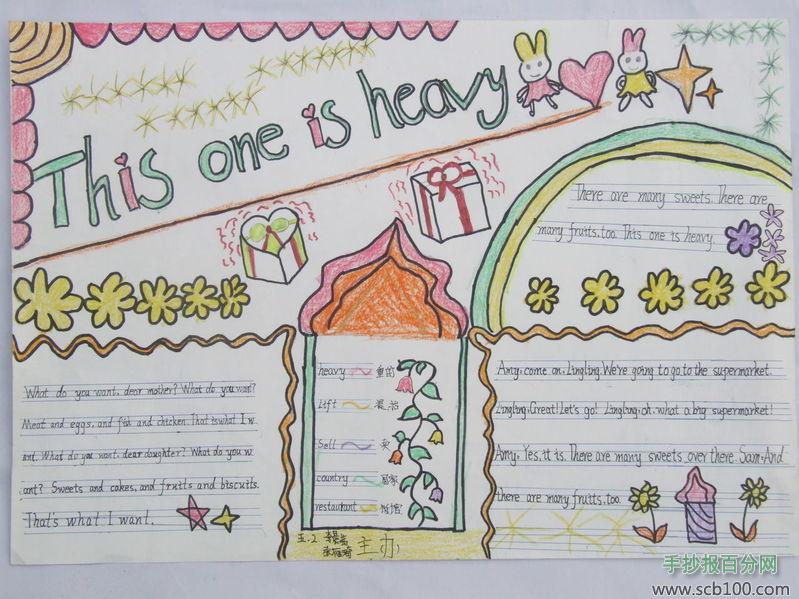 This one is heavy
There are many sweets. There are
many fruits, too. This one is heavy.
What do you want, dear mother? What do you want?
Meat and eggs, and fish and chicken. That is what I w
ant. What do you want, dear daughter? What do you w
ant? Sweets and cakes, and fruits and biscuits.
That's what I want.
heavy 重的
Lift
Sell 卖
country 国家
restaurant 饭馆
五.2
主办
Amy, come on, Lingling. We're going to go to the supermarket.
Lingling, Great! Let's go! Lingling, oh, what a big supermarket!
Amy, Yes, it is. There are many sweets over there. Sam, And
there are many fruits, too.
手抄报百分网
www.scb100.com